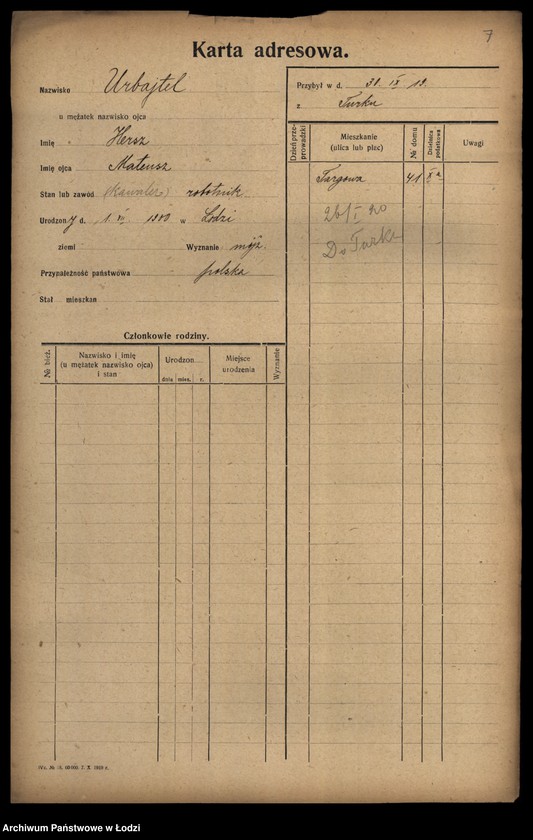 7
Karta adresowa.
Nazwisko Urbajtel
u mężatek nazwisko ojca
Imię Hersz
Imię ojca Mateusz
Stan lub zawód (kawaler) robotnik
Urodzony d. 1 VI 1880 w Łodzi
ziemi Wyznanie mojż.
Przynależność państwowa polska
Stał mieszkan
Przybył w d. 30 IX 19.
z Turku
Dzień przeprowadzki
Mieszkanie (ulica lub plac)
№ domu
Dzielnica podatkowa
Uwagi
Targowa 41 Xa
26/I 20
Do Turku
Członkowie rodziny.
№ bież.
Nazwisko i imię
(u mężatek nazwisko ojca)
i stan
Urodzon
dnia mies. r.
Miejsce
urodzenia
Wyznanie
7. X. 1919 r.
Archiwum Państwowe w Łodzi